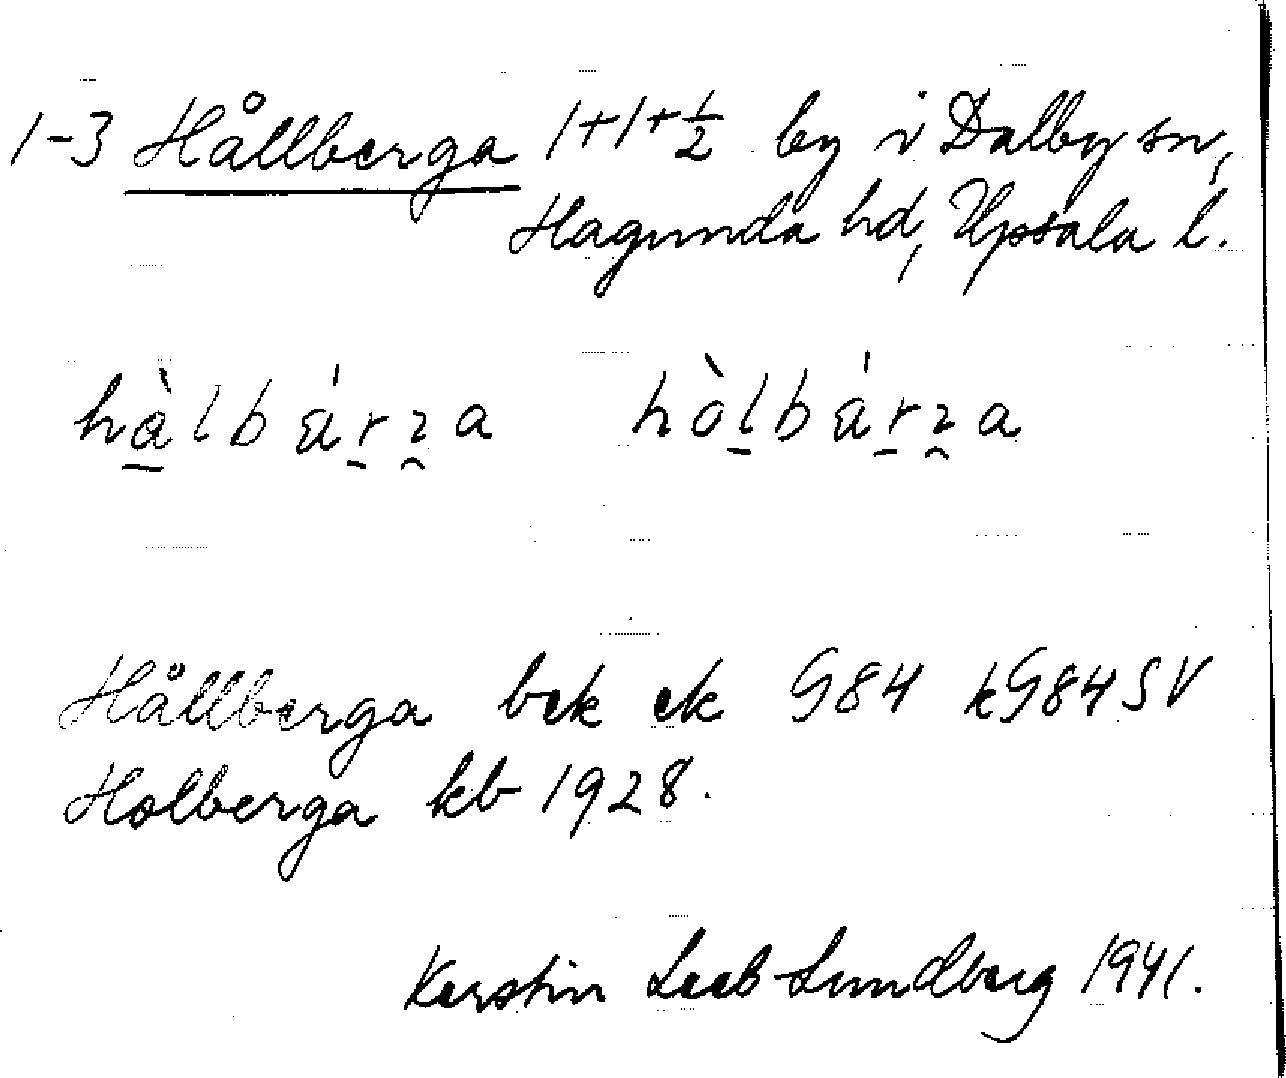 1-3 Hållberga 1+1+½ by i Dalby sn,
Hagunda hd, Upsala l.
hàlbárꝛa hòlbárꝛa
Hållberga bek ek G84 kG84SV
Holberga kb 1928.
Kerstin Leeb-Lundberg 1941.